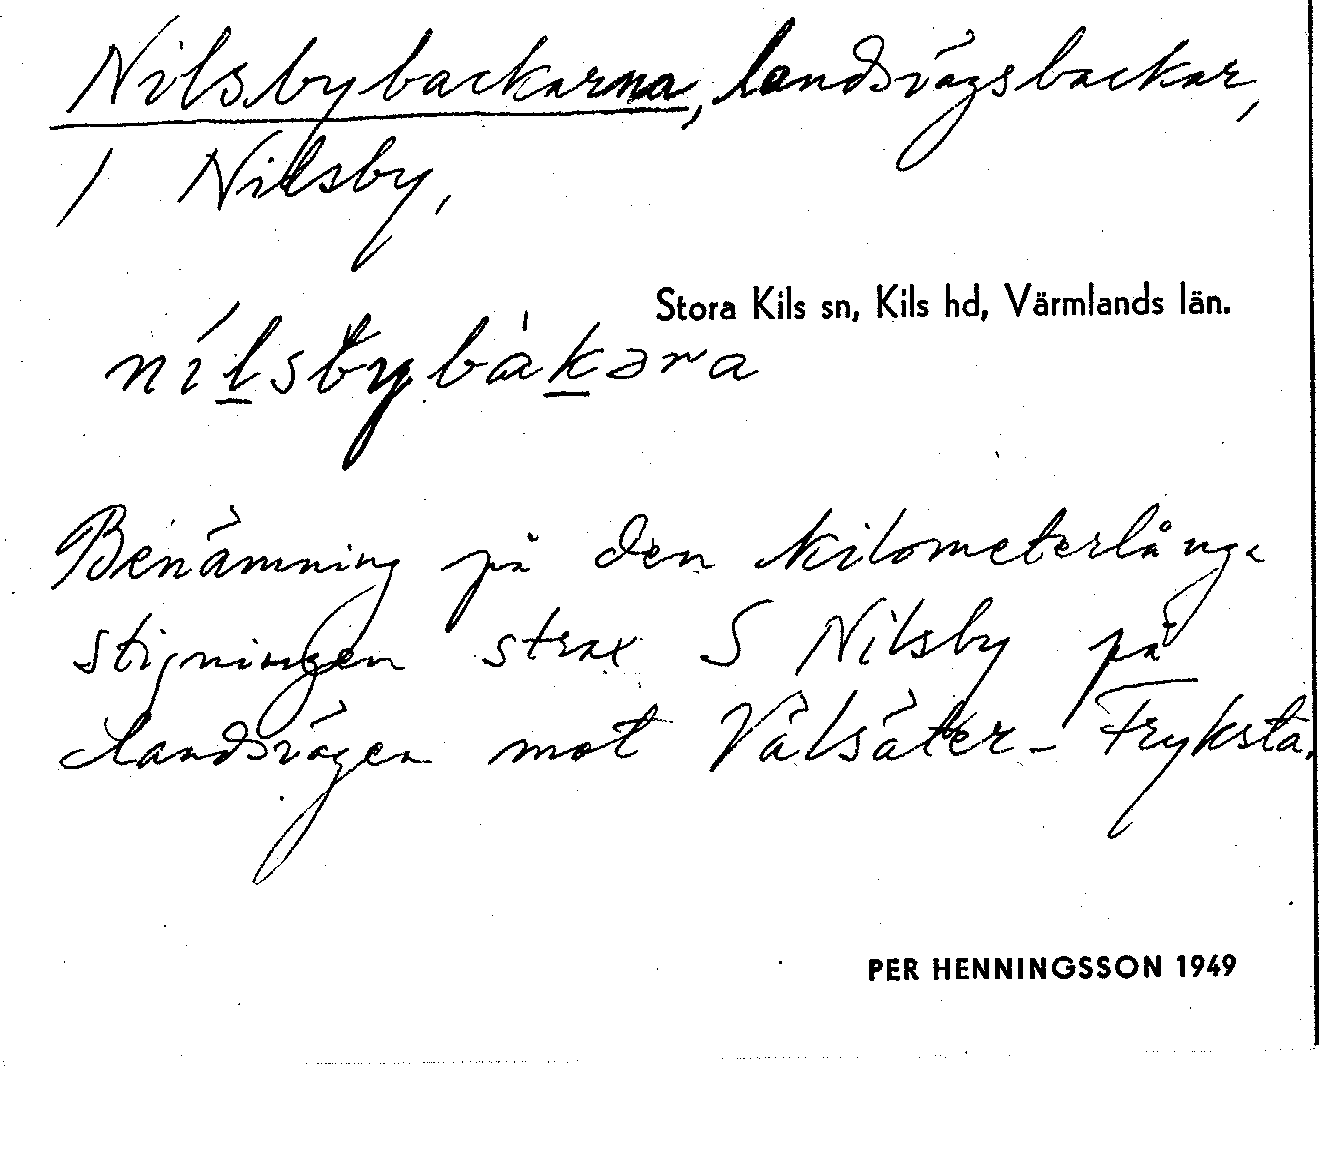 Nilsbybackarna, landsvägsbackar,
/ Nilsby,
Stora Kils sn, Kils hd, Värmlands län.
nílsbybàkəra
Benämning på den kilometerlånga
stigningen strax S Nilsby på
landsvägen mot Vålsäter-Fryksta.
PER HENNINGSSON 1949